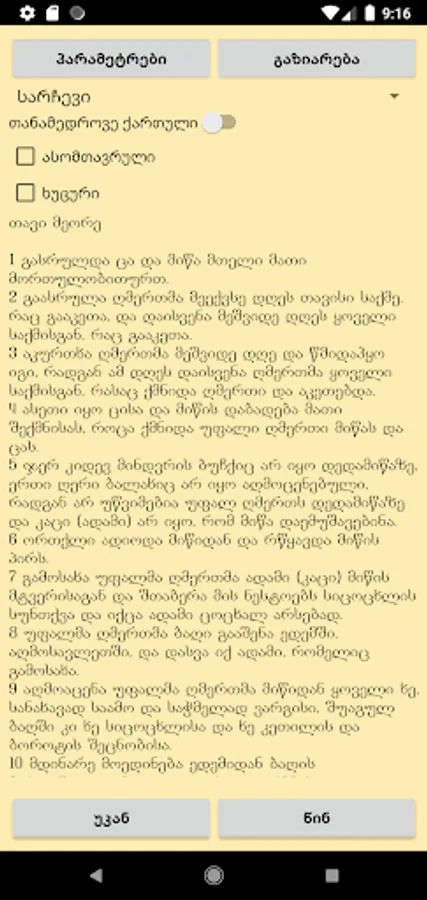 9:16
პარამეტრები გაზიარება
სარჩევი
თანამედროვე ქართული
ასომთავრული
ხუცური
თავი მეორე
1 გასრულდა ცა და მიწა მთელი მათი
მორთულობითურთ.
2 გაასრულა ღმერთმა მეექვსე დღეს თავისი საქმე,
რაც გააკეთა, და დაისვენა მეშვიდე დღეს ყოველი
საქმისგან, რაც გააკეთა.
3 აკურთხა ღმერთმა მეშვიდე დღე და წმიდაჰყო
იგი, რადგან ამ დღეს დაისვენა ღმერთმა ყოველი
საქმისგან, რასაც ქმნიდა ღმერთი და აკეთებდა.
4 ასეთი იყო ცისა და მიწის დაბადება მათი
შექმნისას, როცა ქმნიდა უფალი ღმერთი მიწას და
ცას.
5 ჯერ კიდევ მინდვრის ბუჩქიც არ იყო დედამიწაზე,
ერთი ღერი ბალახიც არ იყო აღმოცენებული,
რადგან არ უწვიმებია უფალ ღმერთს დედამიწაზე
და კაცი (ადამი) არ იყო, რომ მიწა დაემუშავებინა.
6 ორთქლი ადიოდა მიწიდან და რწყავდა მიწის
პირს.
7 გამოსახა უფალმა ღმერთმა ადამი (კაცი) მიწის
მტვერისაგან და შთაბერა მის ნესტოებს სიცოცხლის
სუნთქვა და იქცა ადამი ცოცხალ არსებად.
8 უფალმა ღმერთმა ბაღი გააშენა ედემში,
აღმოსავლეთში, და დასვა იქ ადამი, რომელიც
გამოსახა.
9 აღმოაცენა უფალმა ღმერთმა მიწიდან ყოველი ხე,
სანახავად საამო და საჭმელად ვარგისი, შუაგულ
ბაღში კი ხე სიცოცხლისა და ხე კეთილის და
ბოროტის შეცნობისა.
10 მდინარე მოედინება ედემიდან ბაღის
უკან წინ